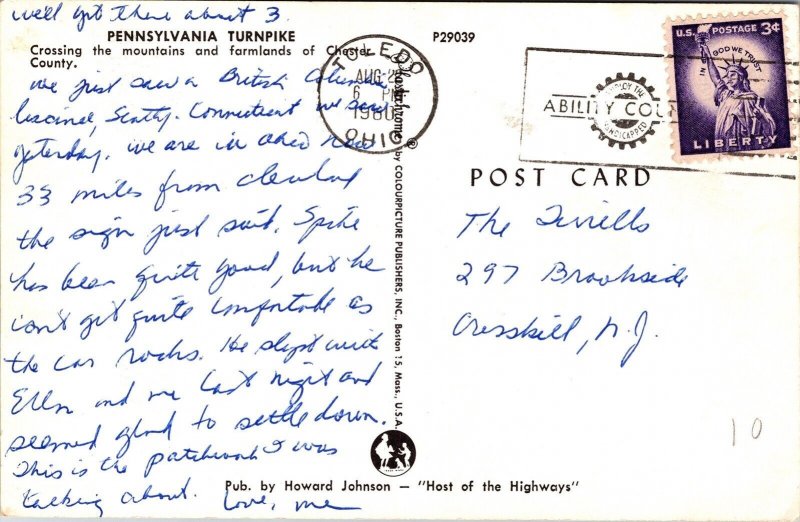 we'll get there about 3.
PENNSYLVANIA TURNPIKE
Crossing the mountains and farmlands of Chester
County.
We just saw a British Columbia
license, Scotty. Connecticut we saw
yesterday. We are in Ohio now
33 miles from Cleveland
the sign just said. Spike
has been quite good, but he
can't get quite comfortable as
the car rocks. He slept with
Ellen and me last night and
seemed glad to settle down.
This is the patchwork I was
talking about. Love, me
P29039
TOLEDO
AUG 2
6 PM
1960
OHIO
Plastichrome ® by COLOURPICTURE PUBLISHERS, INC., Boston 15, Mass., U.S.A.
EMPLOY THE
ABILITY COU
HANDICAPPED
U.S. POSTAGE 3¢
IN GOD WE TRUST
LIBERTY
POST CARD
The Tirrells
297 Brookside
Cresskill, N.J.
10
Pub. by Howard Johnson — "Host of the Highways"